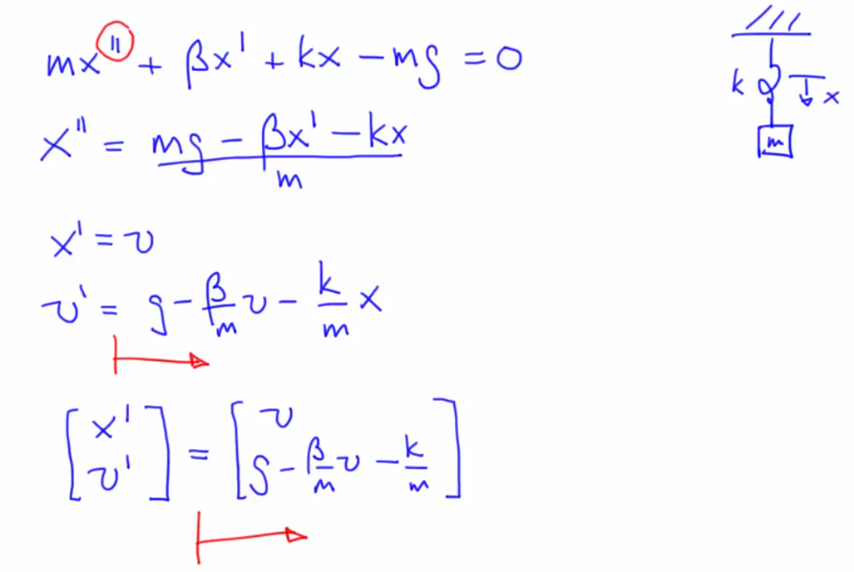 mx'' + βx' + kx - mg = 0
x'' = (mg - βx' - kx) / m
x' = v
v' = g - β/m v - k/m x
[x' v'] = [v g - β/m v - k/m]
k x
m